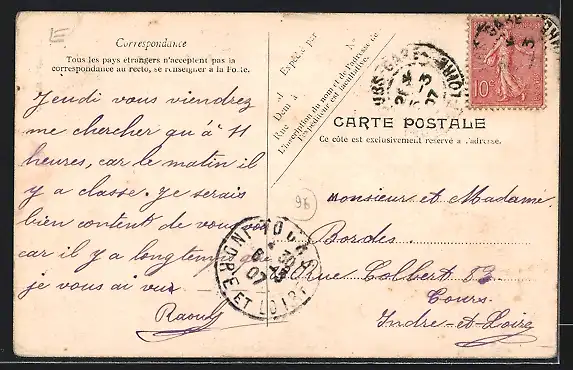 Correspondance
Tous les pays étrangers n'acceptent pas la
correspondance au recto, se renseigner à la Poste.
Jeudi vous viendrez
me chercher qu'à 11
heures, car le matin il
y a classe. Je serais
bien content de vous voir
car il y a longtemps que
je vous ai vus
Raoul
Expédié par
Demt à
Rue
N°
L'inscription du nom et de l'adresse de
l'Expéditeur est facultative.
10c
CARTE POSTALE
Ce côté est exclusivement réservé à l'adresse.
96
Monsieur et Madame
Bordes
Rue Colbert 83
Tours
Indre-et-Loire
TOURS
30
07
INDRE ET LOIRE